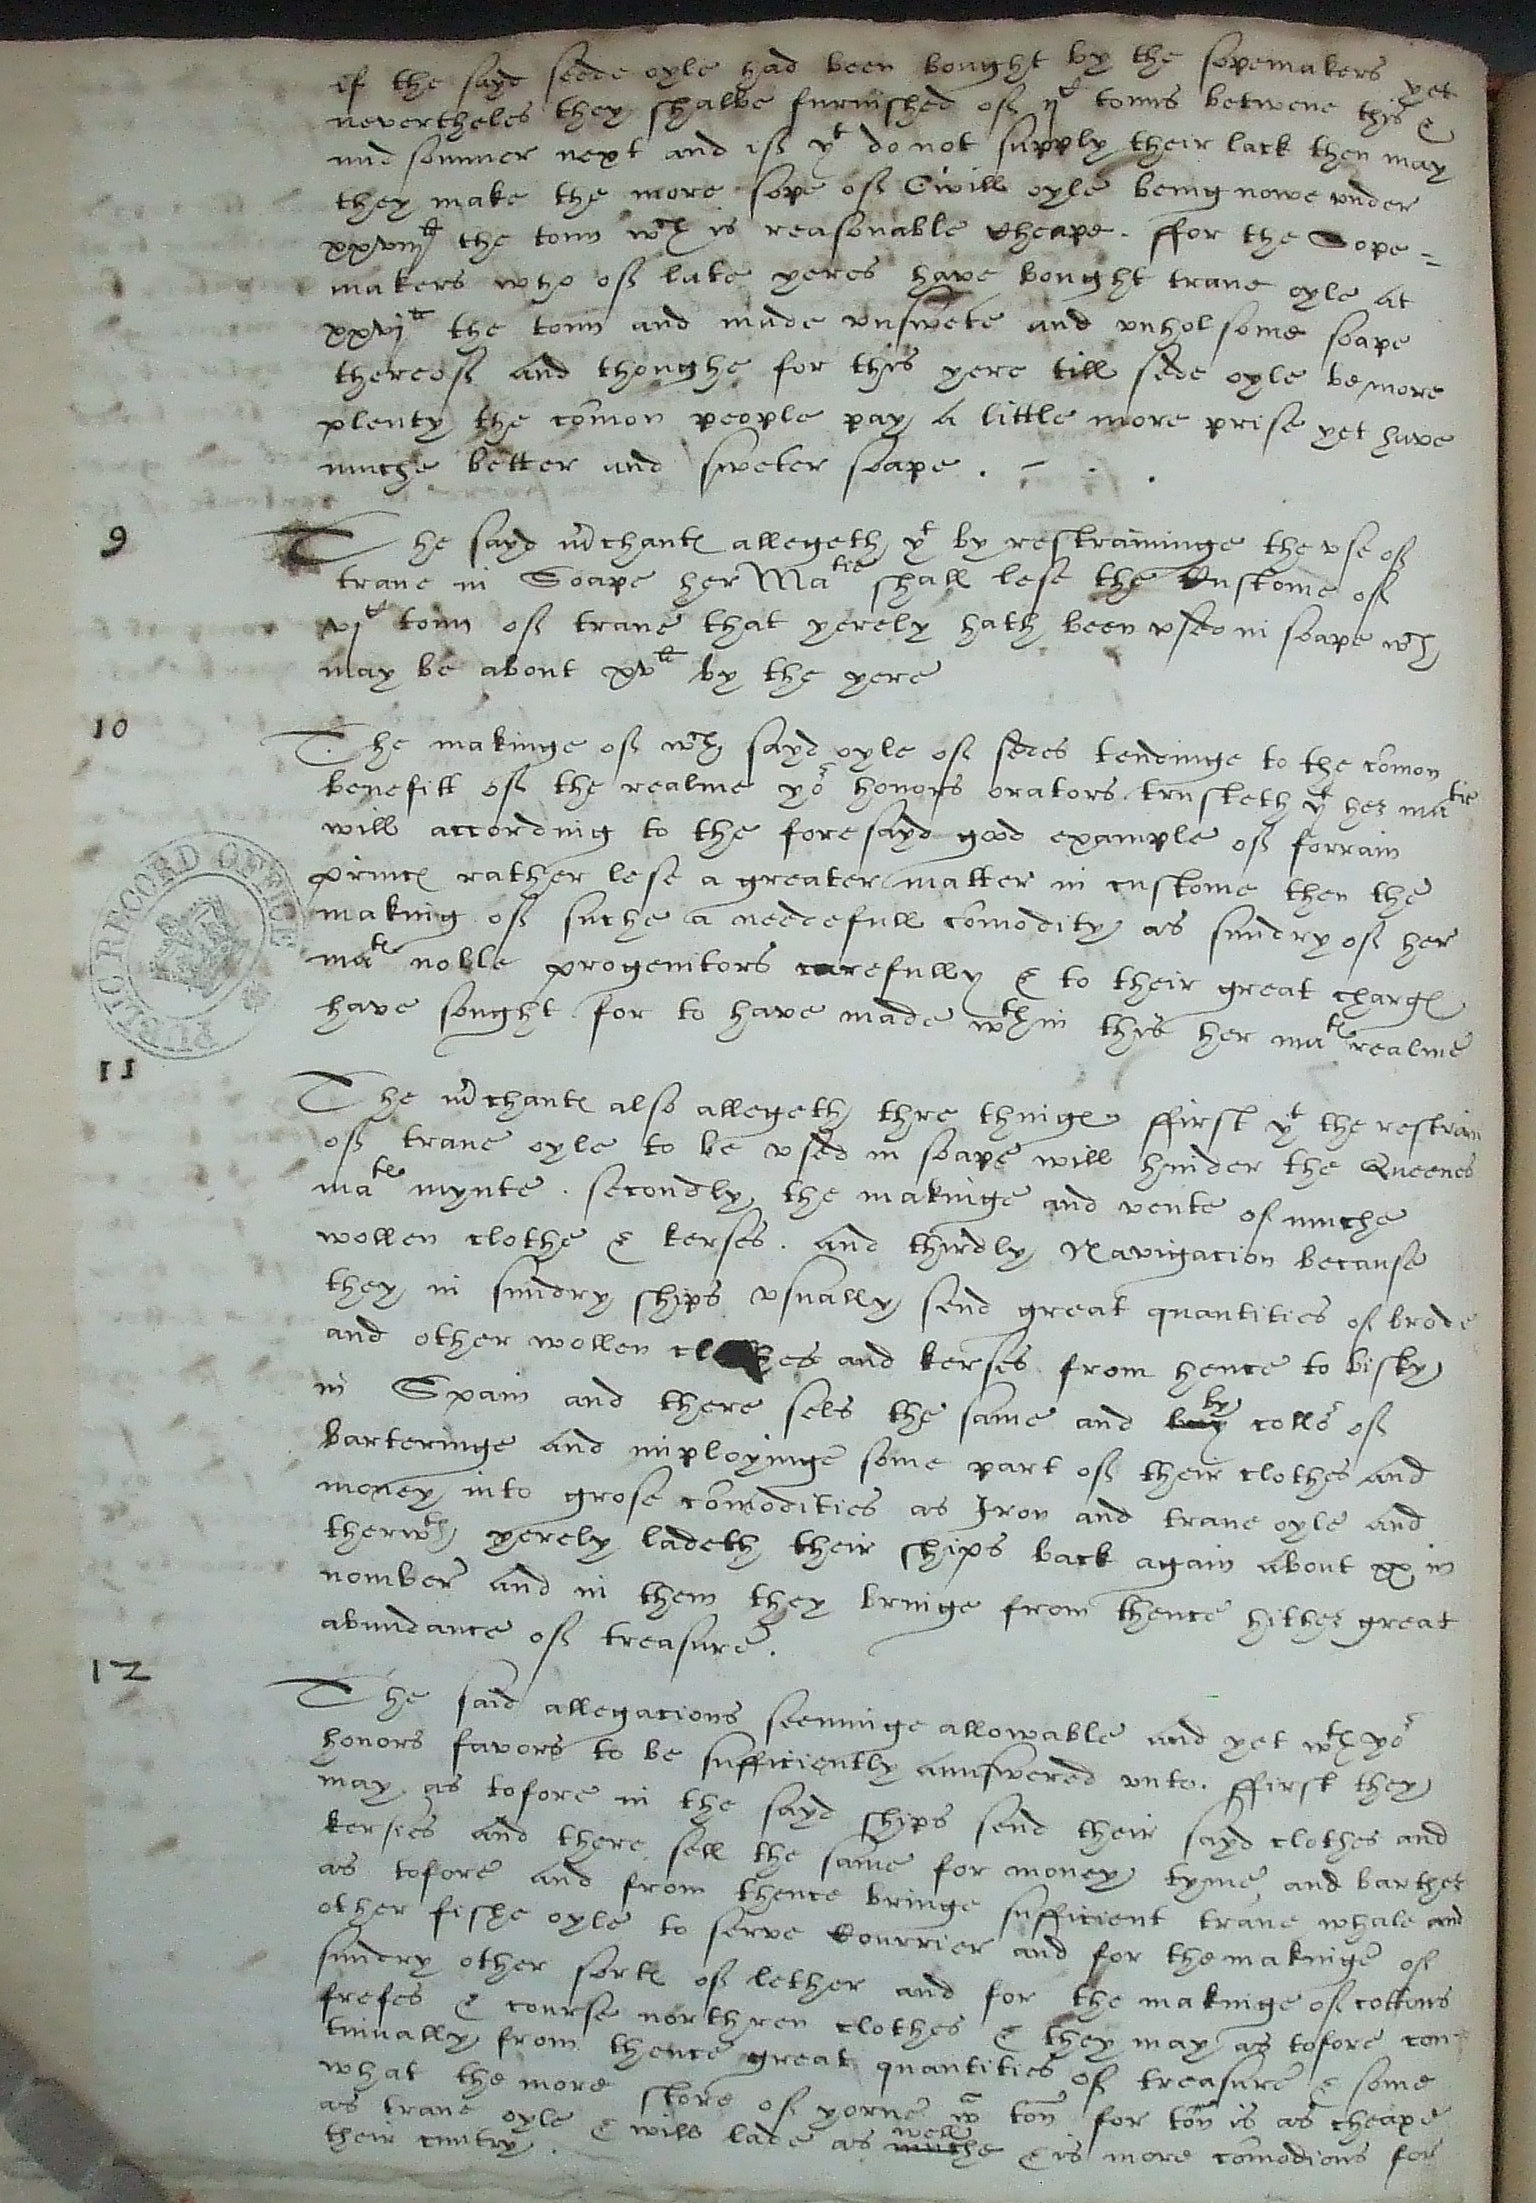 if the sayd seede oyle had been bought by the sopemakers yet
nevertheles they shalbe furnished of ijC tonns betwene this &
mid sommer next and if yt do not supply their lack then may
they make the more sope of Civill oyle being nowe under
xxviijli the tonn wch is reasonable cheape. ffor the Sope=
makers who of late yeres have bought trane oyle at
xxvjli the tonn and made unswete and unholsome soape
thereof And thoughe for this yere till sede oyle be more
plenty the comon people pay A little more prise yet have
muche better and sweter soape . - . .
9
The sayd mrchants allegeth yt by restraininge the use of
trane in Soape her Matie shall lese the Custome of
vjC tonn of trane that yerely hath been used in soape wch
may be about xvli by the yere
10
The makinge of wch sayd oyle of sedes tendinge to the comon
benefitt of the realme yor honors orators trusteth yt her matie
will according to the foresayd good example of forrain
princs rather lese a greater matter in custome then the
making of suche a needefull comodity as sundry of her
mats noble progenitors carefully & to their great chargs
have sought for to have made wthin this her mats realme
PUBLIC RECORD OFFICE
11
The mrchants also allegeth thre things ffirst yt the restrain
of trane oyle to be used in soape will hinder the Queenes
mats mynte. secondly the makinge and vente of muche
wollen clothe & kerses. And thirdly Navigacion because
they in sundry ships usually send great quantities of brode
and other wollen clothes and kerses from hence to bisky
in Spain and there sels the same and buy by collor of
barteringe and imployinge some part of their clothes and
money into grose comodities as Iron and trane oyle and
therwth yerely ladeth their ships back again about xx in
nomber and in them they bringe from thence hither great
abundance of treasure.
12
The said allegacions seeminge allowable and yet wth yor
honors favors to be sufficiently annswered unto. ffirst they
may as tofore in the sayd ships send their sayd clothes and
kersies and there sell the same for money tyme and barther
as tofore and from thence bringe sufficient trane whale and
other fishe oyle to serve Courrier and for the makinge of
sundry other sorts of lether and for the makinge of cottons
frefes & course northren clothes & they may as tofore con=
tinually from thence great quantities of treasure & some
what the more store of yorne tonn for tonn is as cheape
as trane oyle & will lade as muche well & is more comodious for
their cuntry.